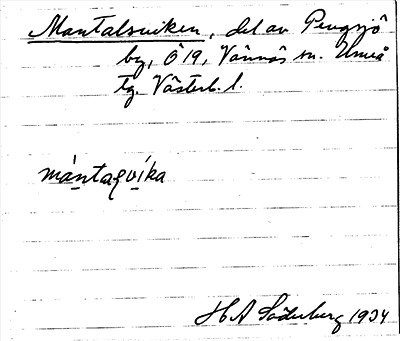 Mantalsviken, del av Pengsjö
by, Ö 19, Vännäs sn. Umeå
tg. Västerb. l.
mántaɷvíka
H A Söderberg 1934